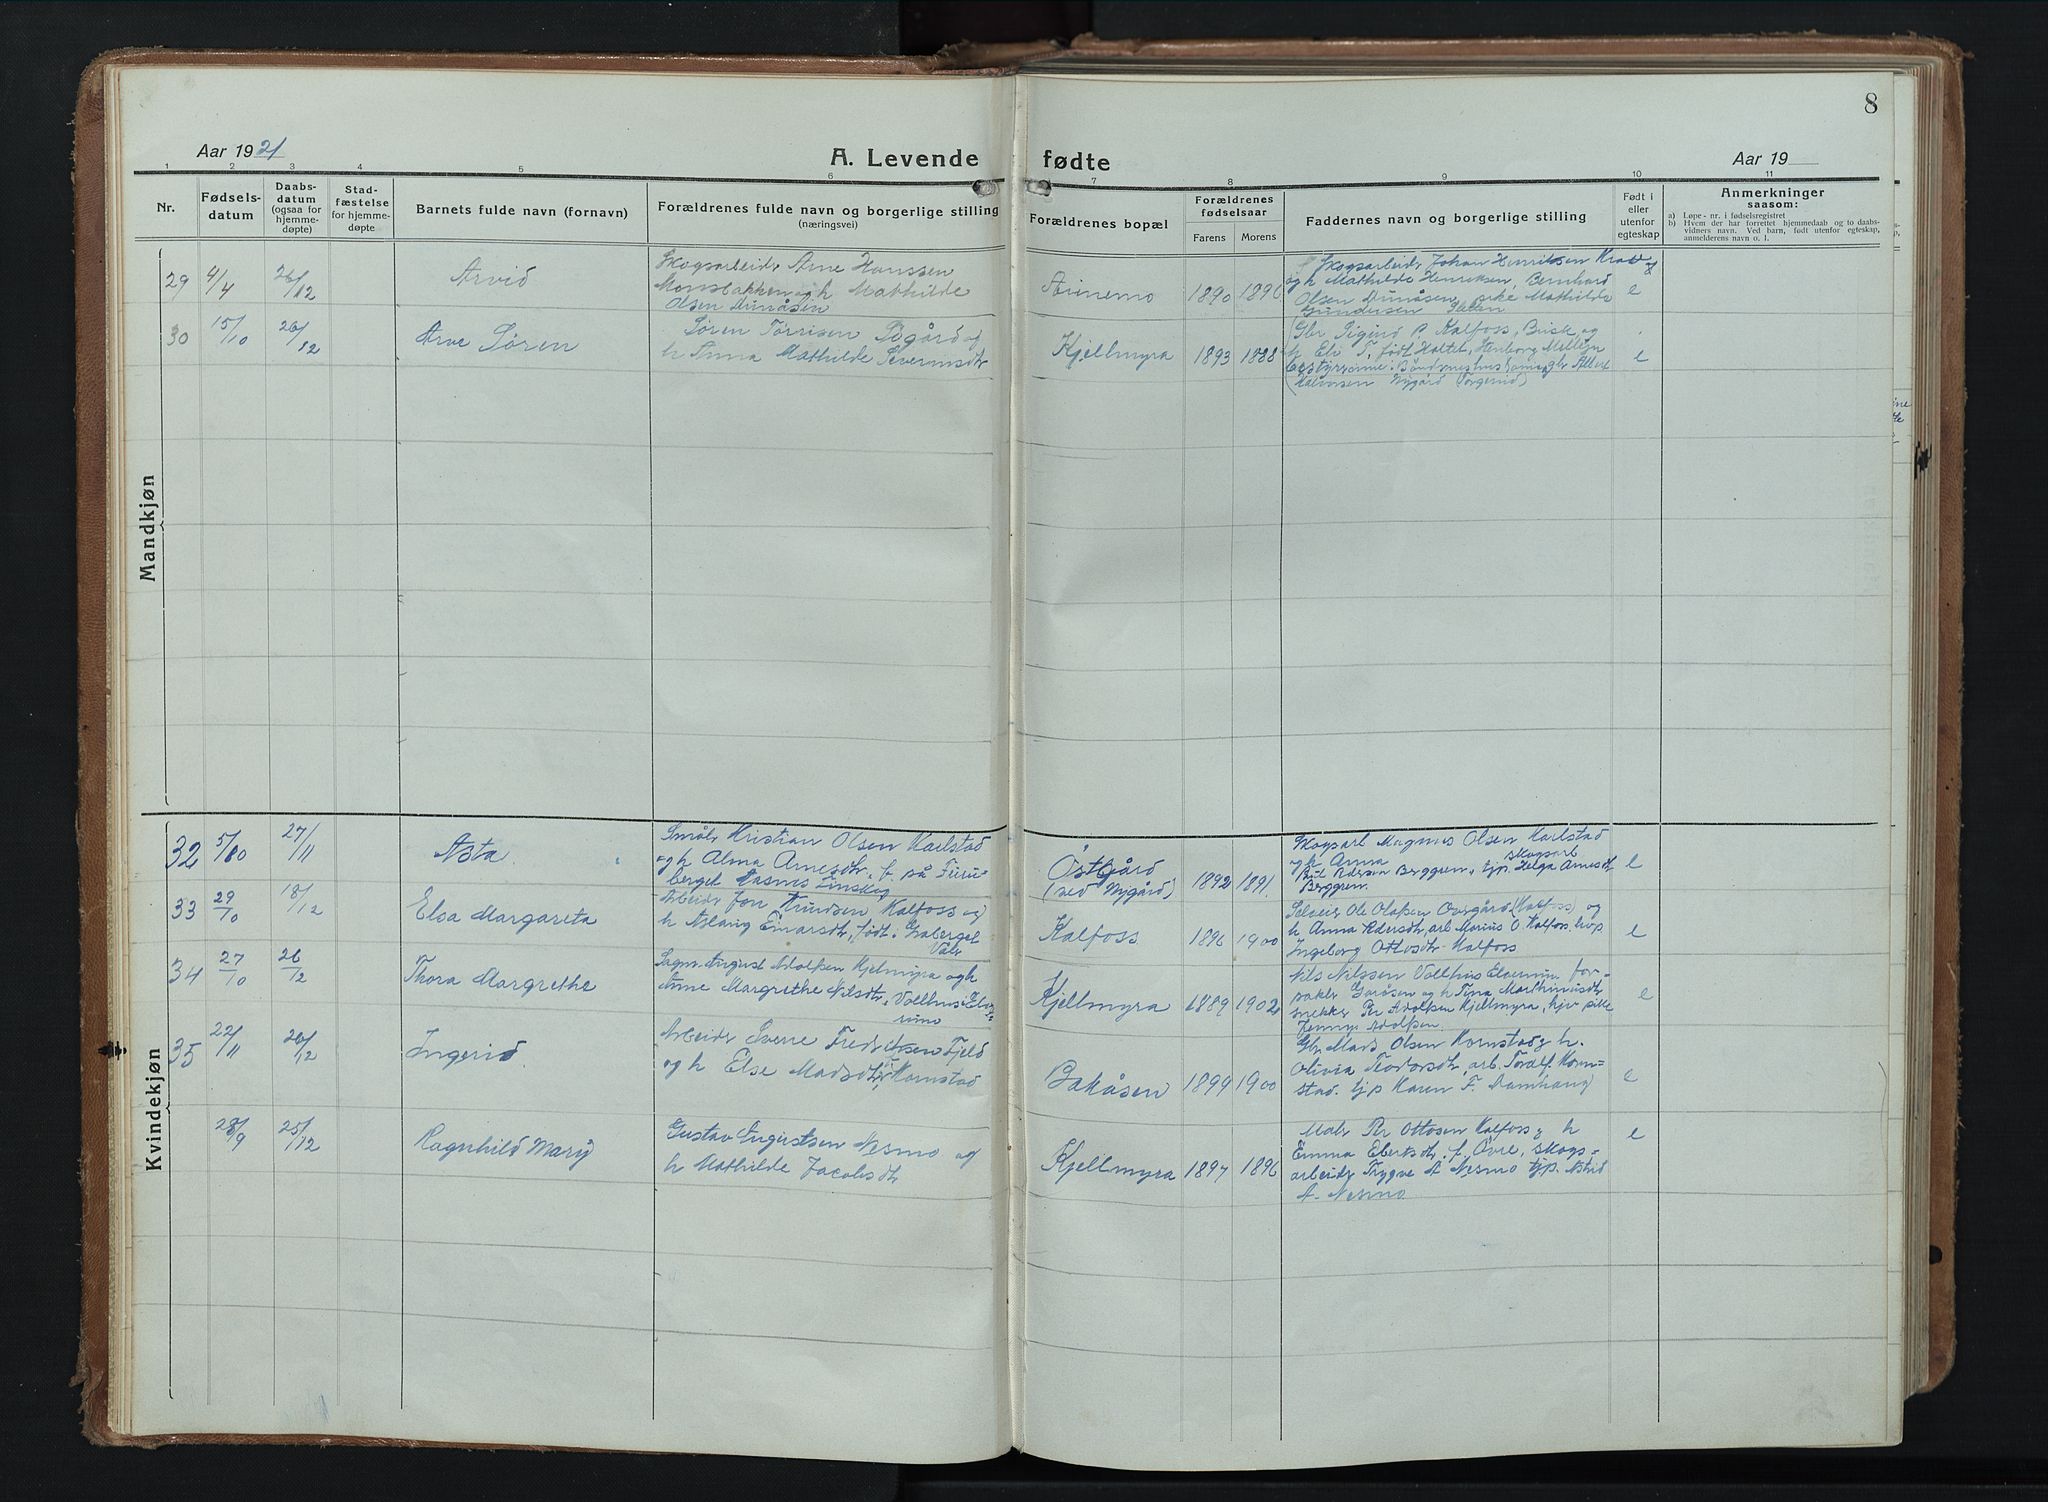 8
Aar 1921
A. Levende fødte
Aar 19
1 2 3 4 5 6 7 8 9 10 11
Nr.
Fødsels-
datum
Daabs-
datum
(ogsaa for
hjemme-
døpte)
Stad-
fæstelse
for hjemme-
døpte
Barnets fulde navn (fornavn)
Forældrenes fulde navn og borgerlige stilling
(næringsvei)
Forældrenes bopæl
Forældrenes
fødselsaar
Farens Morens
Faddernes navn og borgerlige stilling
Født i
eller
utenfor
egteskap
Anmerkninger
saasom:
a) Løpe-nr. i fødselsregistret
b) Hvem der har forrettet hjemmedaab og to daabs-
vidners navn. Ved barn, født utenfor egteskap,
anmelderens navn o. l.
Mandkjøn
29 4/4 26/12 Arvid
Skogsarbeider Arne Hanssen
og h Mathilde
Olsen
1890 1896
Skogsarbeider Johan Henriksen
og h Mathilde Henriksen, Bernhard
Olsen Mathilde
Gundersen
e
30 15/10 26/12 Arve Søren
Søren Tørrisen og
h Anna Mathilde
Kjellmyra 1893 1888
Gbr Sigurd Kalfoss, Brisk og
h født Holtet,
Halvorsen Nygård
e
Kvindekjøn
32 5/10 27/11 Asta
Småbr Kristian Olsen Karlstad
og h Alma Arnesdtr, f. på Furu-
berget
Østgård
(ved Nygård) 1892 1891
Skogsarb Magnus Olsen Karlstad
og h Anna skogsarb
Pedersen Berggren, tjp. Helga Arnesdtr
Berggren
e
33 29/10 18/12 Elsa Margareta
Arbeider Jon Knudsen Kalfoss og
h Aslaug Einarsdtr, født
Våler
Kalfoss 1896 1900
Ole Olafsen (Kalfoss) og
h Anna Pedersdtr, arb Marius O. Kalfoss
Ingeborg Ottosdtr Kalfoss
e
34 27/10 26/12 Thora Margrethe
August Adolfsen Kjelmyra og h
Anne Margrethe Nilsdtr, Vollhus Elve-
rum
Kjellmyra 1889 1902
Nils Nilssen Vollhus Elverum for-
og h Tina Marthinusdtr
snekker Per Adolfsen Kjellmyra,
Jenny Adolfsen
e
35 22/11 26/12 Ingerid
Arbeider Sverre Fredriksen Fjeld
og h Else Madsdtr f. Kornstad
Bakåsen 1899 1900
Gbr Mads Olsen Kornstad og h.
Olivia Teodorsdtr, arb. Torolf Korn-
stad. tjp Karen F. Damhaug
e
28/9 25/12 Ragnhild Mary
Gustav Augustsen Nesmo og
h Mathilde Jacobsdtr
Kjellmyra 1897 1896
Maler Per Ottosen Kalfoss og h
Emma Ebertsdtr. f. Øvre, skogs-
arbeider Trygve A Nesmo tjp. Astrid
A. Nesmo
e